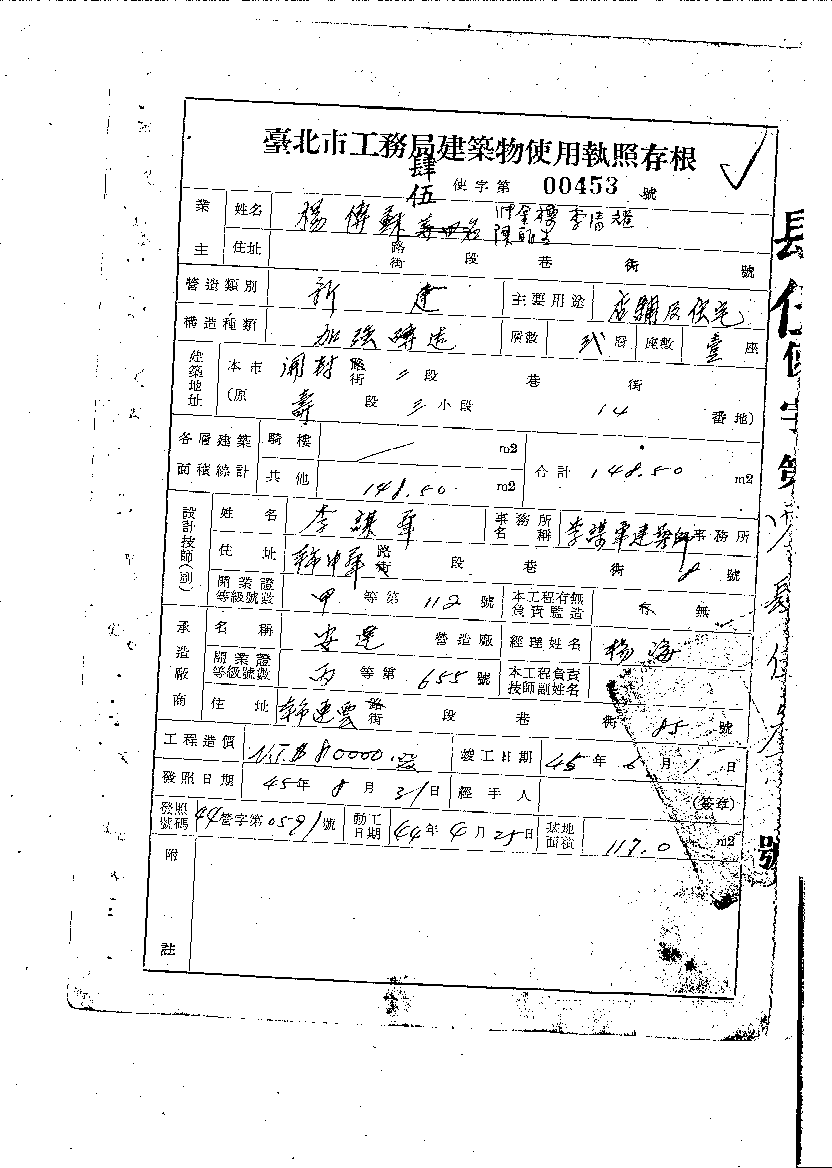 臺北市工務局建築物使用執照存根
肆伍 使字第 00453 號
業主 姓名 楊傳蘇 李清超
住址 路街 段 巷 街 號
營造類別 新建 主要用途 店鋪及住宅
構造種類 加強磚造 層數 弍層 座數 壹座
建築地址 本市 浦村 路街 二段 巷 街
(原 壽 段 三小段 14 番地)
各層建築面積總計 騎樓 m2 合計 148.50 m2
其他 148.50 m2
設計技師(副) 姓名 李謀華 事務所名稱 李謀華建築師事務所
住址 中華路街 段 巷 街 8 號
開業證等級號數 甲等第 112 號 本工程有無負責監造 有 無
承造廠商 名稱 安達 營造廠 經理姓名 楊海
開業證等級號數 丙等第 655 號 本工程負責技師副姓名
住址 連雲路街 段 巷 街 85 號
工程造價 N.T.$ 80000.- 竣工日期 45年 6月 1日
發照日期 45年 8月 31日 經手人 (簽章)
發照號碼 44營字第0591號 動工日期 44年4月25日 基地面積 117.0 m2
附註
字第
號